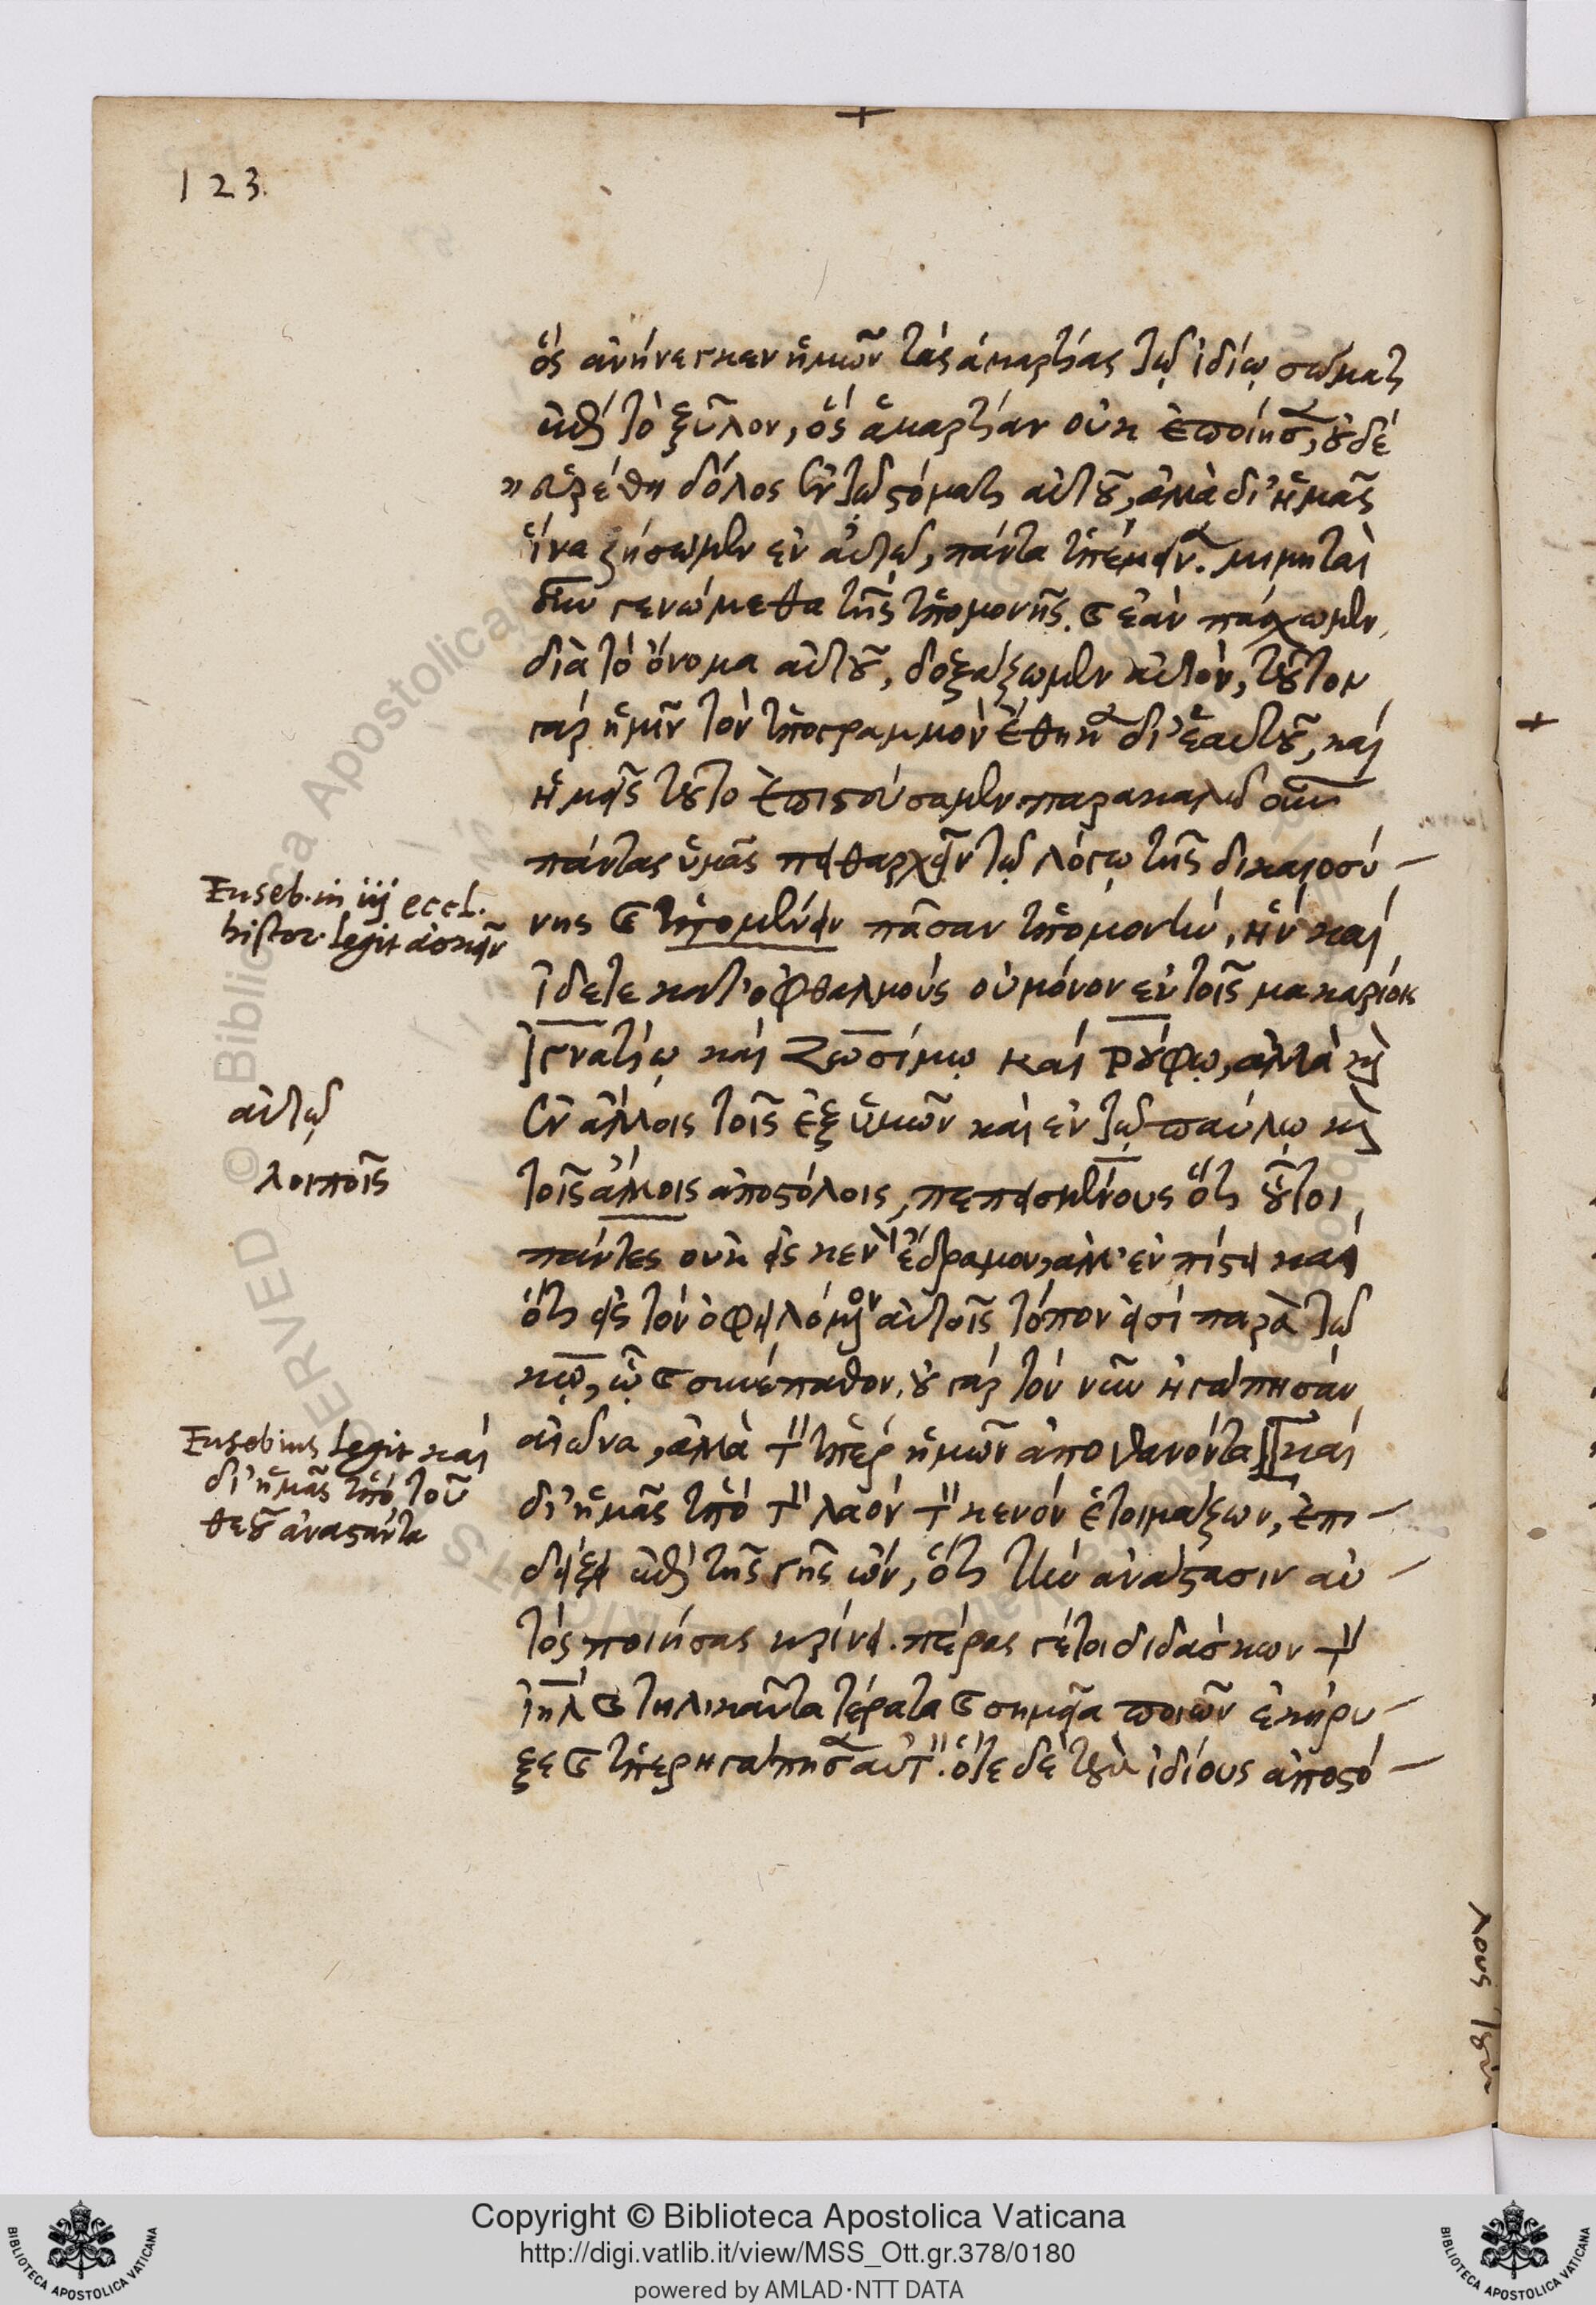 123.
ὃς ἀνήνεγκεν ἡμῶν τὰς ἁμαρτίας τῷ ἰδίῳ σώματι
ἐπὶ τὸ ξύλον, ὃς ἁμαρτίαν οὐκ ἐποίησεν, οὐδὲ
εὑρέθη δόλος ἐν τῷ στόματι αὐτοῦ, ἀλλὰ δι' ἡμᾶς
ἵνα ζήσωμεν ἐν αὐτῷ, πάντα ὑπέμεινεν. μιμηταὶ
οὖν γενώμεθα τῆς ὑπομονῆς. καὶ ἐὰν πάσχωμεν
διὰ τὸ ὄνομα αὐτοῦ, δοξάζωμεν αὐτόν, τοῦτον
γὰρ ἡμῖν τὸν ὑπογραμμὸν ἔθηκεν δι' ἑαυτοῦ, καὶ
ἡμεῖς τοῦτο ἐπιστεύσαμεν. παρακαλῶ οὖν
πάντας ὑμᾶς πειθαρχεῖν τῷ λόγῳ τῆς δικαιοσύ-
Euseb. in iij eccl.
histor. legit ἀσκεῖν
νης καὶ ὑπομένειν πᾶσαν ὑπομονήν, ἣν καὶ
ἴδετε κατ' ὀφθαλμοὺς οὐ μόνον ἐν τοῖς μακαρίοις
Ἰγνατίῳ καὶ Ζωσίμῳ καὶ Ῥούφῳ, ἀλλὰ καὶ
αὐτῷ
ἐν ἄλλοις τοῖς ἐξ ὑμῶν καὶ ἐν τῷ παύλῳ καὶ
λοιποῖς
τοῖς ἄλλοις ἀποστόλοις, πεπεισμένους ὅτι οὗτοι
πάντες οὐκ εἰς κενὸν ἔδραμον, ἀλλ' ἐν πίστει καὶ
ὅτι εἰς τὸν ὀφειλόμενον αὐτοῖς τόπον εἰσὶ παρὰ τῷ
κῳ, ᾧ καὶ συνέπαθον. οὐ γὰρ τὸν νῦν ἠγάπησαν
αἰῶνα, ἀλλὰ τὸν ὑπὲρ ἡμῶν ἀποθανόντα [καὶ
Eusebius legit καὶ
δι' ἡμᾶς ὑπὸ τοῦ
θεοῦ ἀναστάντα
δι' ἡμᾶς ὑπὸ τὸν λαὸν τὸν κενὸν ἑτοιμάζων, ἐπι-
δείξει ἐπὶ τῆς γῆς ὤν, ὅτι τὴν ἀνάστασιν αὐ-
τὸς ποιήσας κρίνει. πέρας γέτοι διδάσκων τὸν
ἰηλ καὶ τηλικαῦτα τέρατα καὶ σημεῖα ποιῶν ἐκήρυ-
ξε καὶ ὑπερηγάπησεν αὐτόν. ὅτε δὲ τοὺς ἰδίους ἀποστό-
λους τοὺς
Copyright © Biblioteca Apostolica Vaticana
http://digi.vatlib.it/view/MSS_Ott.gr.378/0180
powered by AMLAD·NTT DATA
BIBLIOTECA APOSTOLICA VATICANA
BIBLIOTECA APOSTOLICA VATICANA